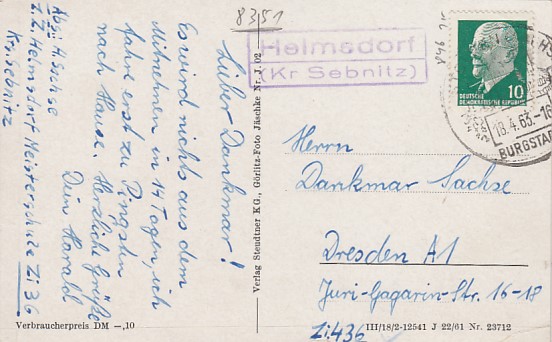 8351
Lieber Dankmar!
Es wird nichts aus dem
Mitnehmen in 14 Tagen, ich
fahre erst zu Pingsten
nach Hause. Herzliche Grüße
Dein Harald
Abs: H. Sachse
z. Z. Heimsdorf Meisterschule Zi 36
Kr. Sebnitz
Verbraucherpreis DM –,10
Verlag Steudtner KG., Görlitz-Foto Jäschke Nr. J 02
Helmsdorf
(Kr Sebnitz)
DEUTSCHE
DEMOKRATISCHE REPUBLIK
10
18.4.63.-16
BURGSTA
Herrn
Dankmar Sachse
Dresden A1
Juri-Gagarin-Str. 16-18
Zi: 436
III/18/2-12541 J 22/61 Nr. 23712